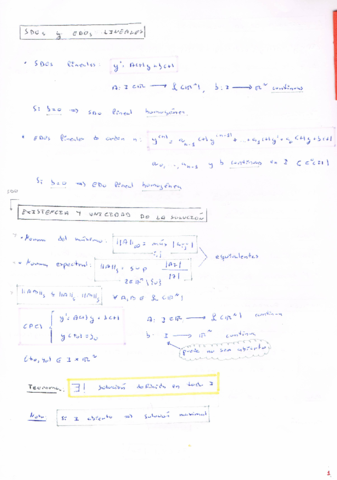 SDOs y EDOs LINEALES
• SDOs lineales y' = A(t)y + b(t)
A: I ⊂ ℝ → L(ℝⁿ), b: I → ℝⁿ continuas
Si b=0 → SDO lineal homogéneo.
• EDOs lineales de orden n: y⁽ⁿ⁾ = aₙ₋₁(t) y⁽ⁿ⁻¹⁾ + ... + a₁(t)y' + a₀(t)y + b(t)
a₀, ..., aₙ₋₁ y b continuas en I
Si b=0 → EDO lineal homogénea
EXISTENCIA Y UNICIDAD DE LA SOLUCIÓN
• Norma del máximo:
equivalentes
• Norma espectral:
∀ A, B ∈ L(ℝⁿ)
(PC) y' = A(t)y + b(t)
A: I ⊂ ℝ → L(ℝⁿ) continua
b: I → ℝⁿ continua
(t₀, y₀) ∈ I × ℝⁿ
puede no ser abierto
Teorema: ∃! solución definida en todo I
Nota: Si I abierto → solución maximal
1